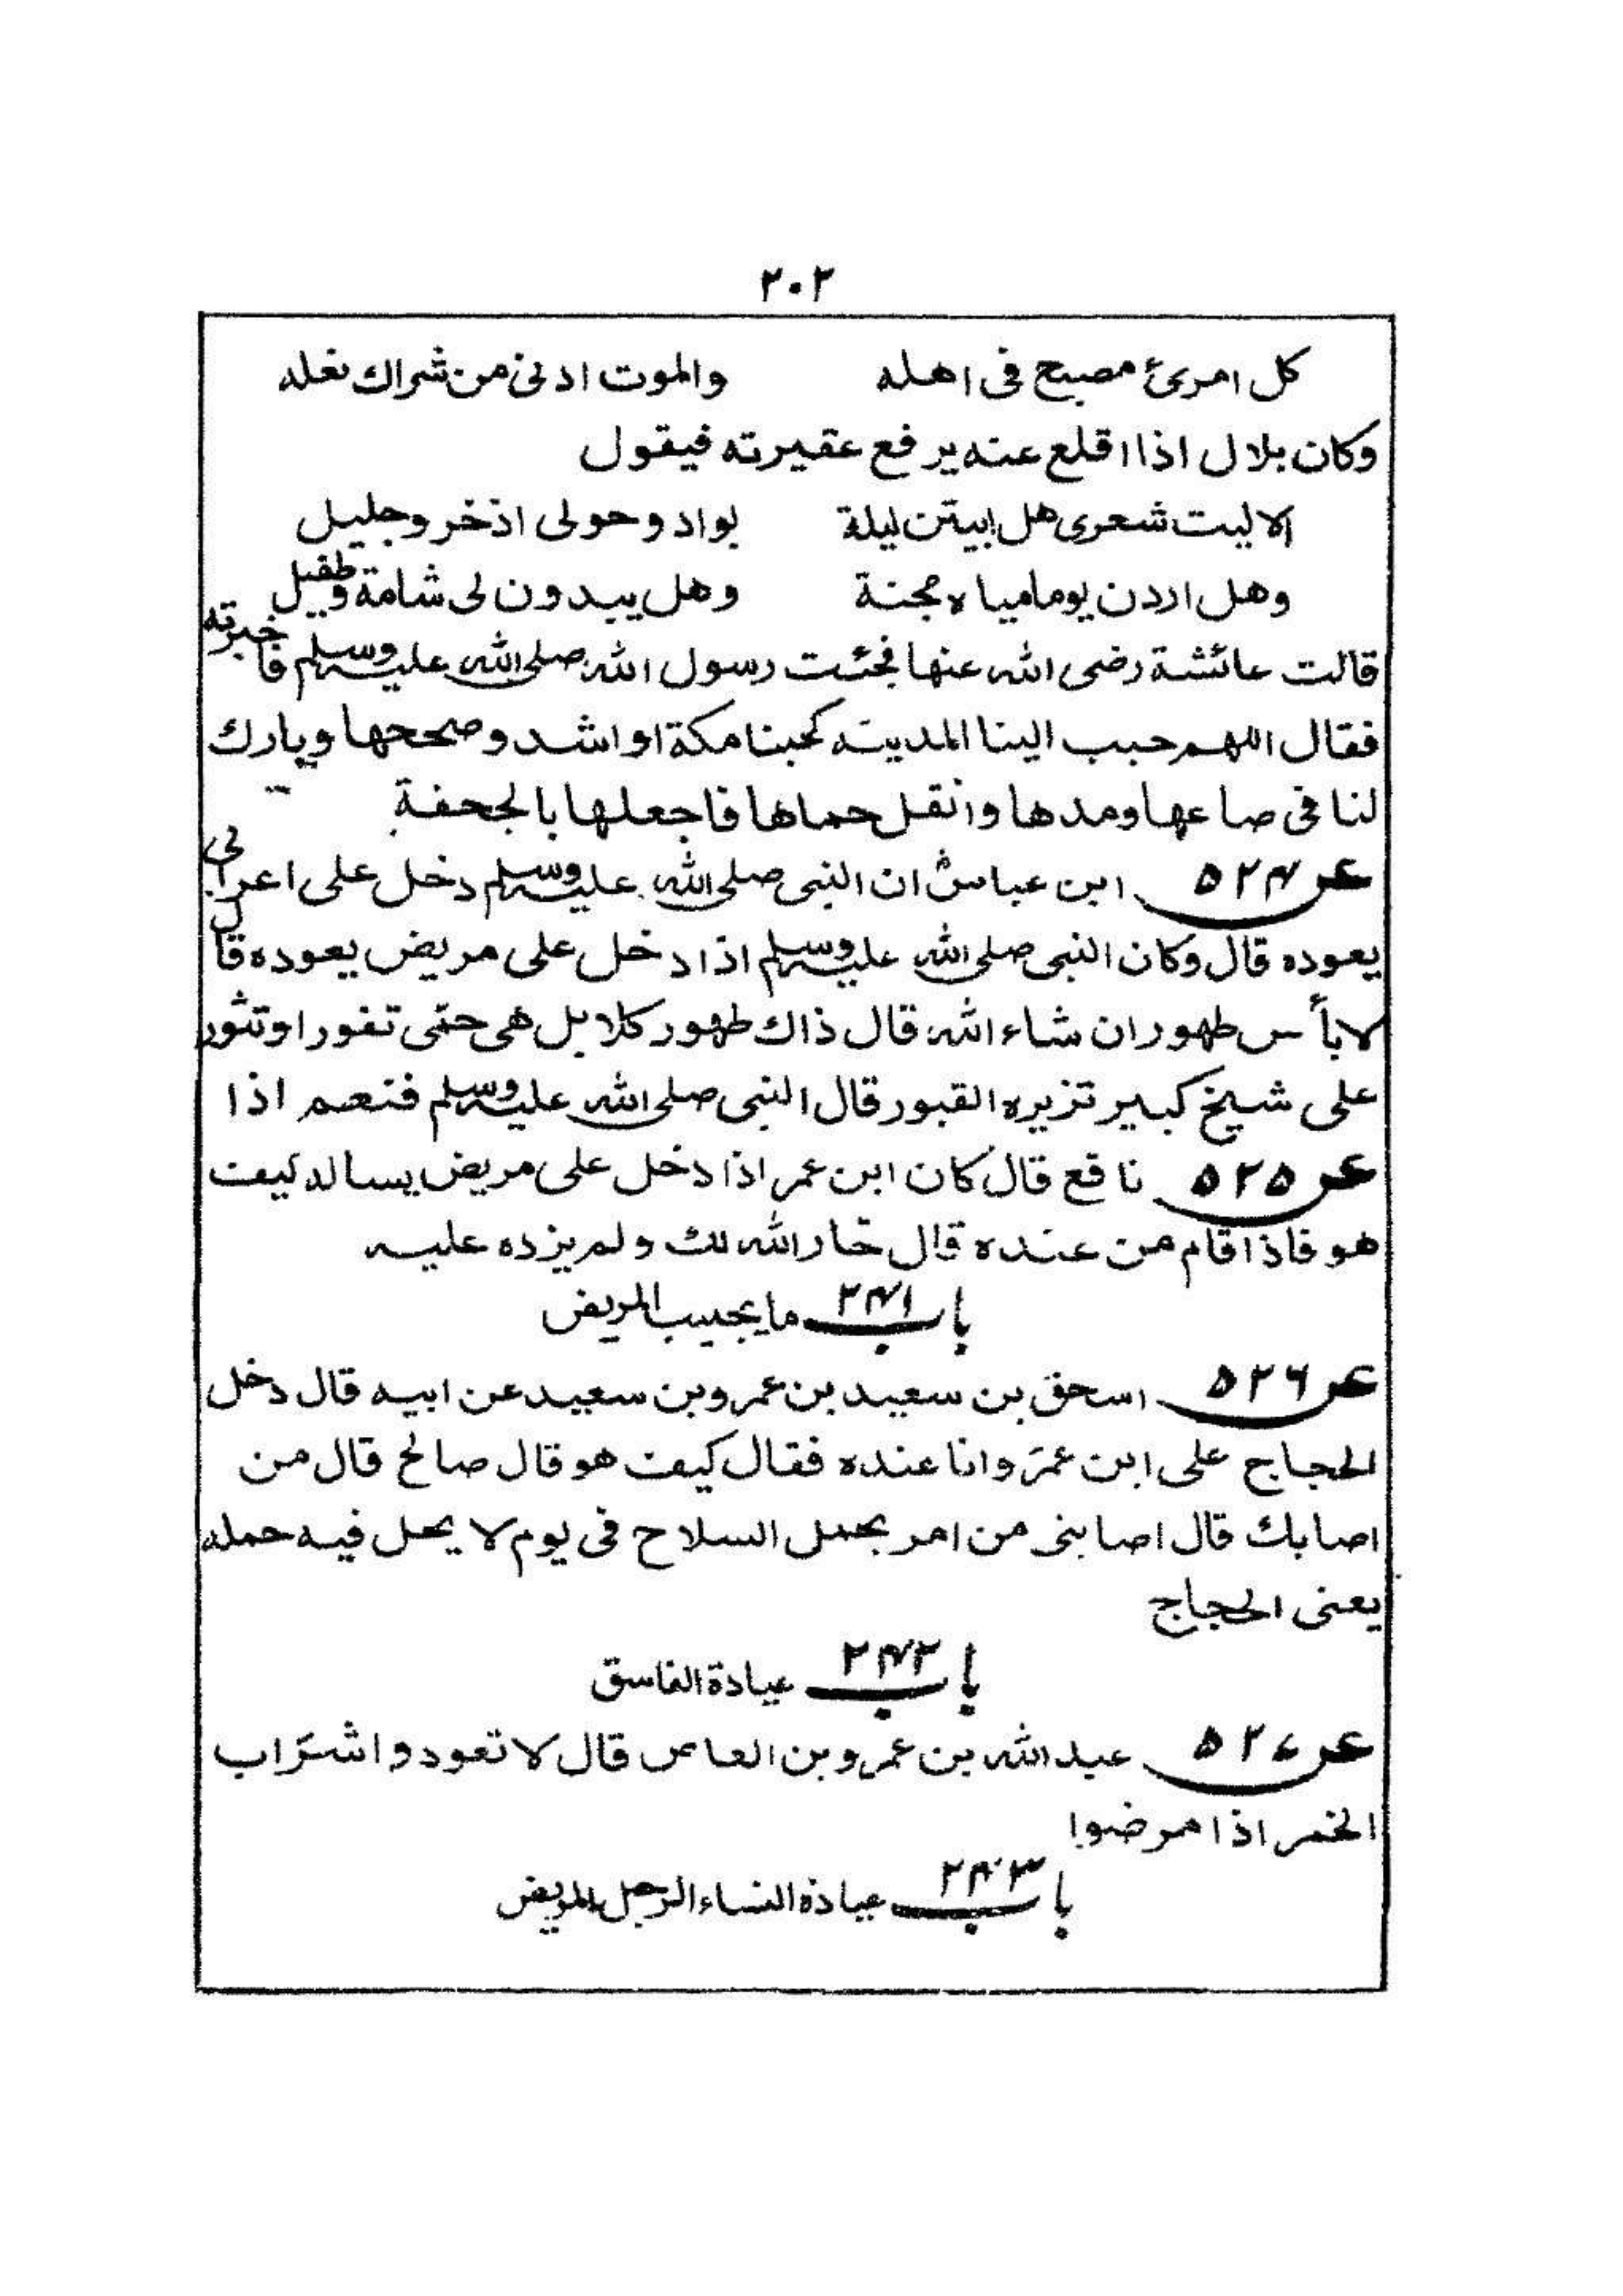 ٢٠٢
كل امرئ مصبح فى اهله والموت ادنى من شراك نعله
وكان بلال اذا اقلع عنه يرفع عقيرته فيقول
الا ليت شعرى هل ابيتن ليلة بواد وحولى اذخر وجليل
وهل اردن يوما مياه مجنة وهل يبدون لى شامة وطفيل
قالت عائشة رضى الله عنها فجئت رسول الله صلى الله عليه وسلم فاخبرته
فقال اللهم حبب الينا المدينه كحبنا مكة او اشد وصححها وبارك
لنا فى صاعها ومدها وانقل حماها فاجعلها بالجحفة
عن ٥٢٤ ابن عباسؓ ان النبى صلى الله عليه وسلم دخل على اعرابى
يعوده قال وكان النبى صلى الله عليه وسلم اذا دخل على مريض يعوده قال
لا بأس طهور ان شاء الله قال ذاك طهور كلا بل هى حمّى تفور او تثور
على شيخ كبير تزيره القبور قال النبى صلى الله عليه وسلم فنعم اذا
عن ٥٢٥ نافع قال كان ابن عمر اذا دخل على مريض يساله كيف
هو فاذا قام من عنده قال خار الله لك ولم يزده عليه
باب ٢٤١ ما يجيب المريض
عن ٥٢٦ اسحق بن سعيد بن عمرو بن سعيد عن ابيه قال دخل
الحجاج على ابن عمر وانا عنده فقال كيف هو قال صالح قال من
اصابك قال اصابنى من امر بحمل السلاح فى يوم لا يحل فيه حمله
يعنى الحجاج
باب ٢٤٢ عيادة الفاسق
عن ٥٢٧ عبد الله بن عمرو بن العاص قال لا تعودوا شرّاب
الخمر اذا مرضوا
باب ٢٤٣ عيادة النساء الرجل المريض